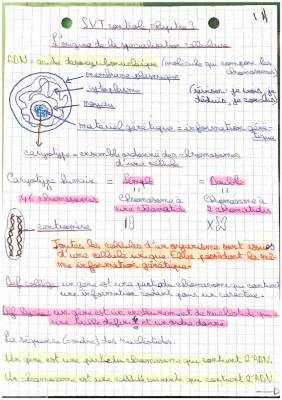 SVT contrôle chapitre 3
L'origine de la spécialisation cellulaire
ADN = acide désoxyribonucléique (molécule qui compose les chromosomes)
membrane plasmique
cytoplasme
noyau
matériel génétique = information génétique
caryotype = ensemble ordonné des chromosomes
d'une cellule
Caryotype humain = Simple = Double
46 chromosomes Chromosome à Chromosome à
une chromatide 2 chromatides
centromère
Toutes les cellules d'un organisme sont issues
d'une cellule unique. Elles possèdent la même
information génétique.
un gène est une partie du chromosome qui contient
une information codant pour un caractère.
un gène est un enchaînement de nucléotides
et un ordre donné
La séquence (= ordre) des nucléotides.
Un gène est une partie du chromosome qui contient l'ADN.
Un chromosome est qui contient l'ADN.